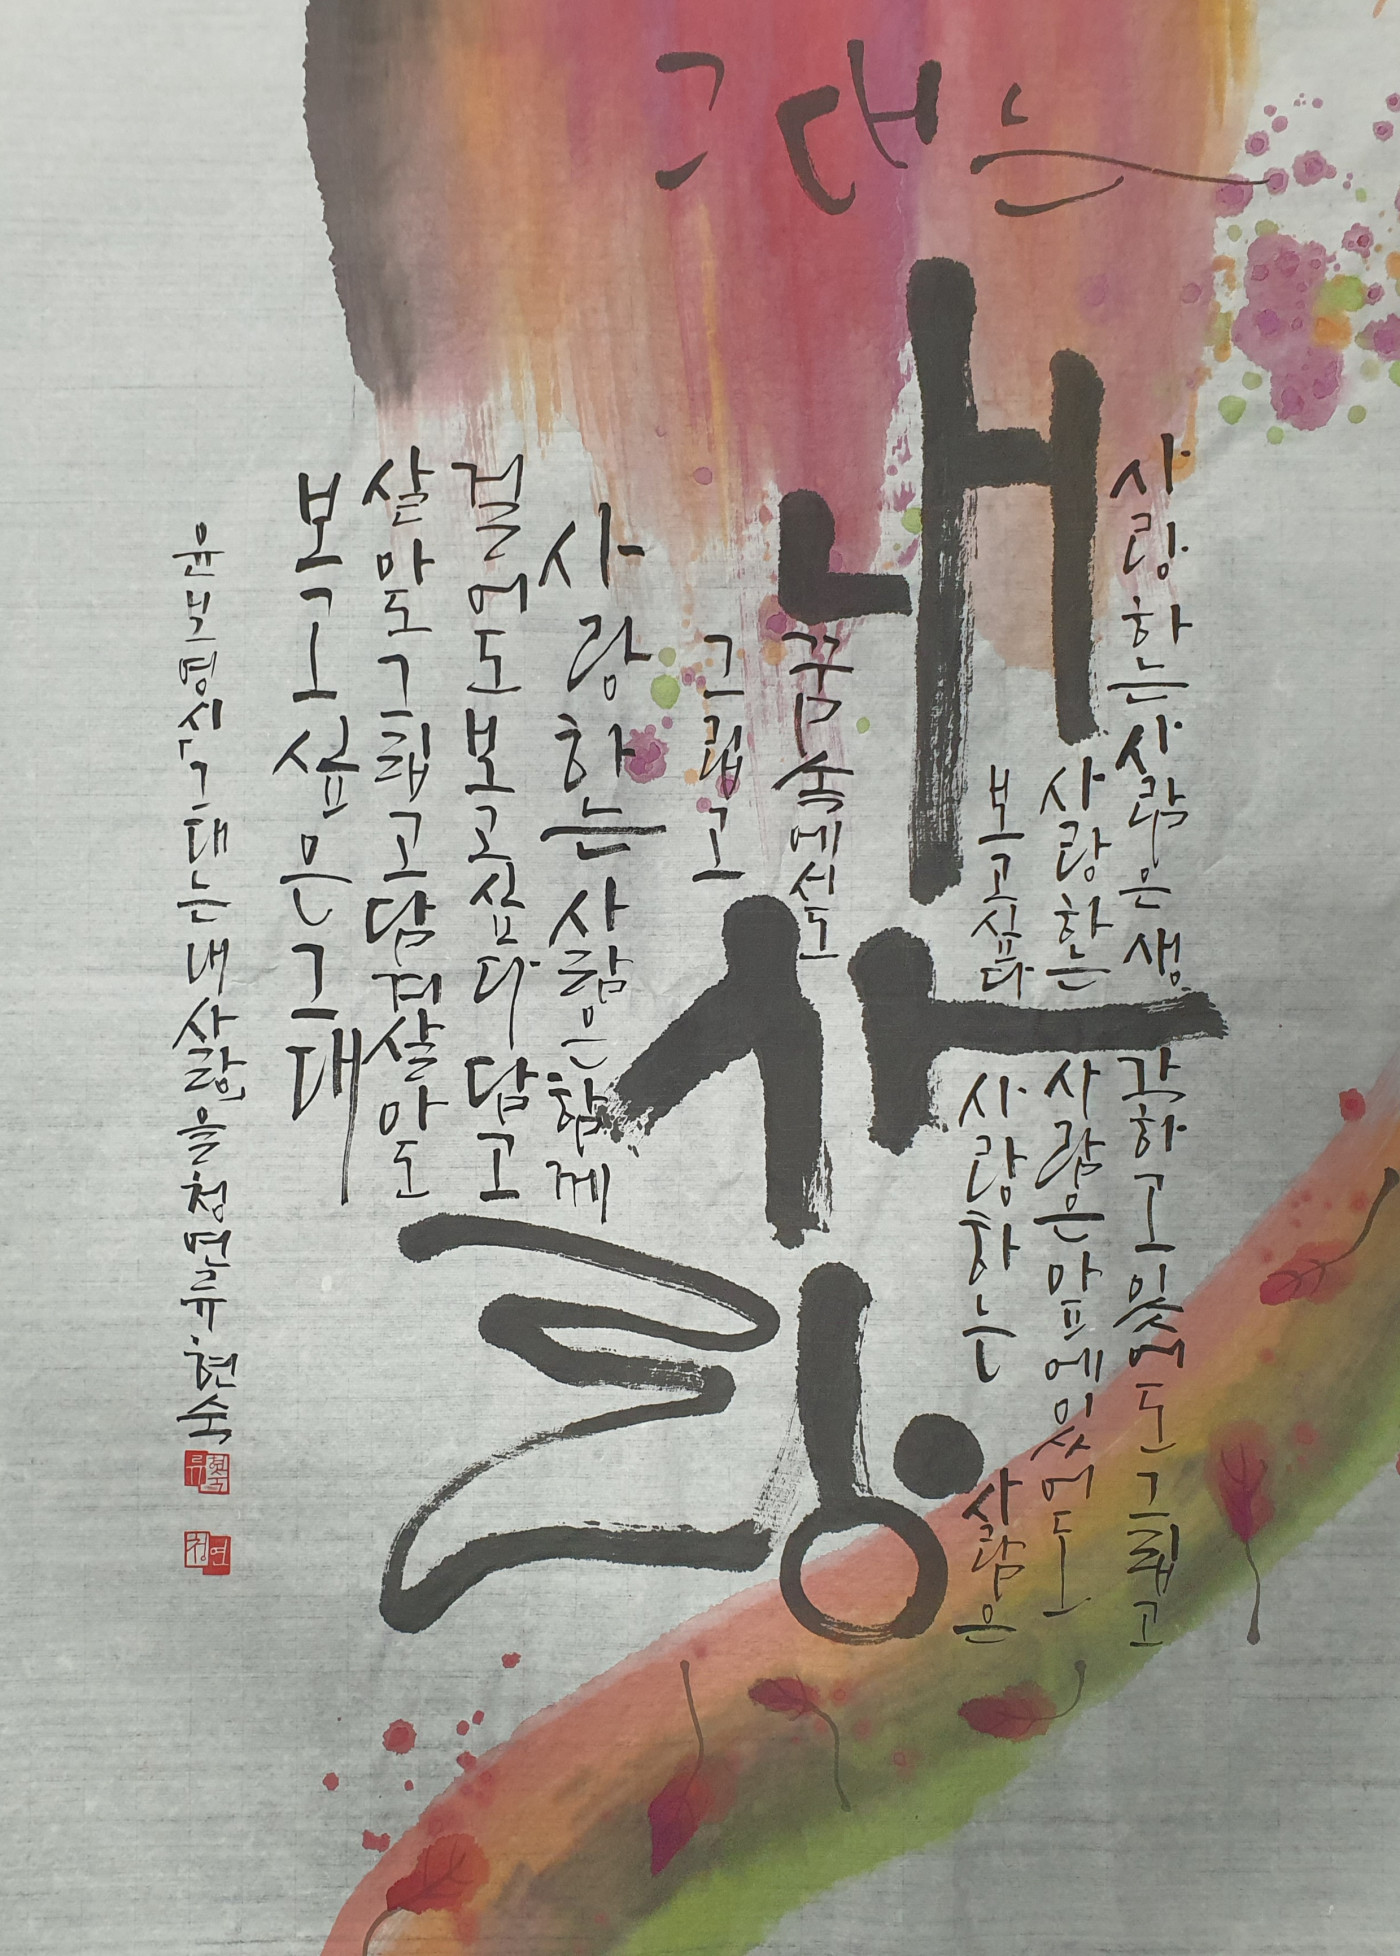 그대는
내
사랑
사랑하는 사람은 생각하고 있어도 그립고
사랑하는 사람은 앞에 있어도
보고싶다 사랑하는 사람은
꿈속에서도
그립고
사랑하는 사람은 함께
걸어도 보고싶다 담고
살아도 그립고 담겨살아도
보고싶은 그대
윤보영시「그대는 내 사랑」을 청연 류현숙
류현숙
청연